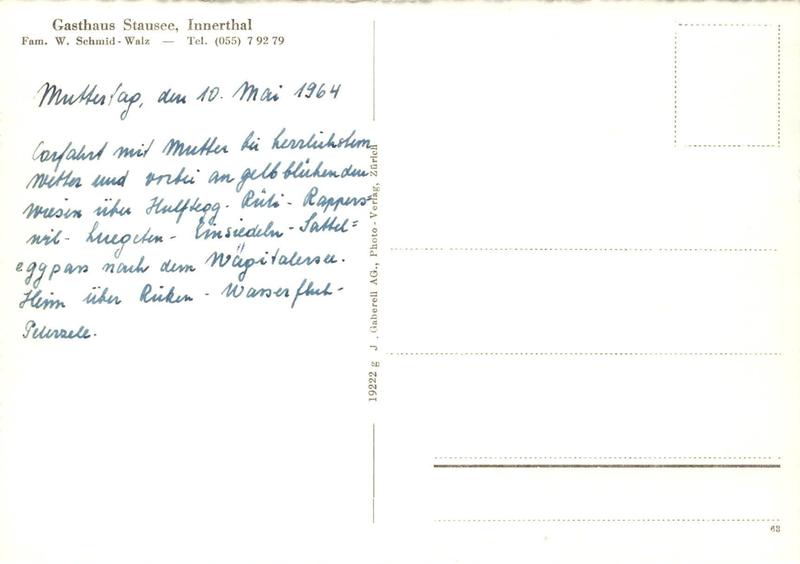 Gasthaus Stausee, Innerthal
Fam. W. Schmid-Walz — Tel. (055) 7 92 79
Muttertag, den 10. Mai 1964
Carfahrt mit Mutter bei herrlichstem
Wetter und vorbei an gelb blühenden
Wiesen über Hulftegg - Rüti - Rappers=
wil - Luegeten - Einsiedeln - Sattel=
eggpass nach dem Wägitalersee.
Heim über Ricken - Wasserfluh -
Peterzele.
19222 g J. Gaberell AG., Photo-Verlag, Zürich
63